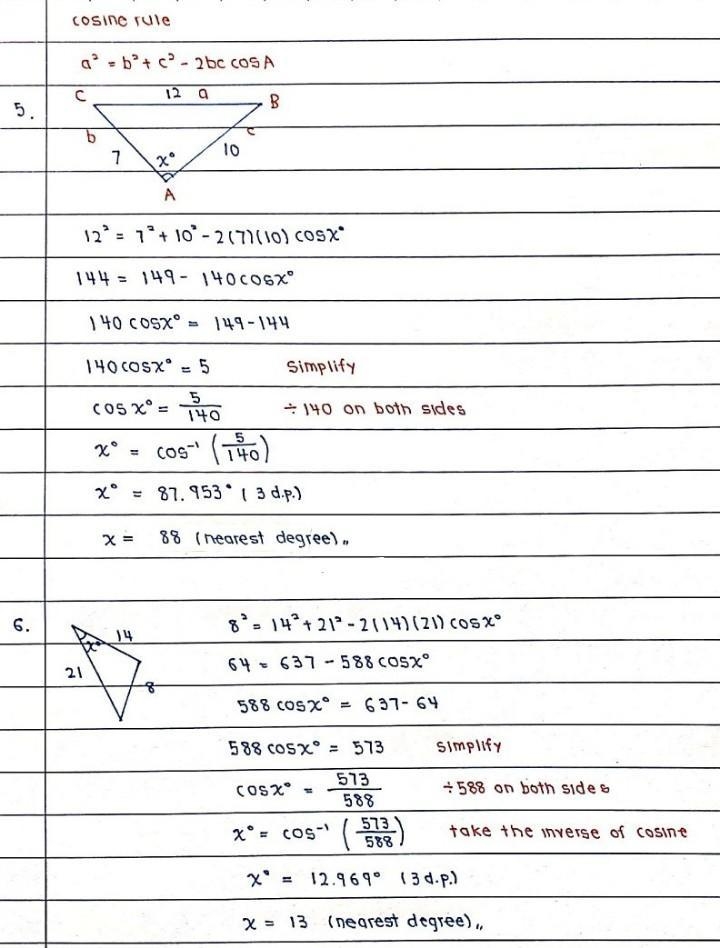 cosine rule
a² = b² + c² - 2bc cos A
5.
C 12 a B
b c
7 x° 10
A
12² = 7² + 10² - 2(7)(10) cosx°
144 = 149 - 140cosx°
140 cosx° = 149-144
140cosx° = 5 simplify
cos x° = 5/140 ÷140 on both sides
x° = cos⁻¹ (5/140)
x° = 87.953° (3 d.p.)
x = 88 (nearest degree),,
6.
x° 14
21
8
8² = 14² + 21² - 2(14)(21) cosx°
64 = 637 - 588cosx°
588 cosx° = 637-64
588 cosx° = 573 simplify
cosx° = 573/588 ÷588 on both sides
x° = cos⁻¹ (573/588) take the inverse of cosine
x° = 12.969° (3d.p.)
x = 13 (nearest degree),,